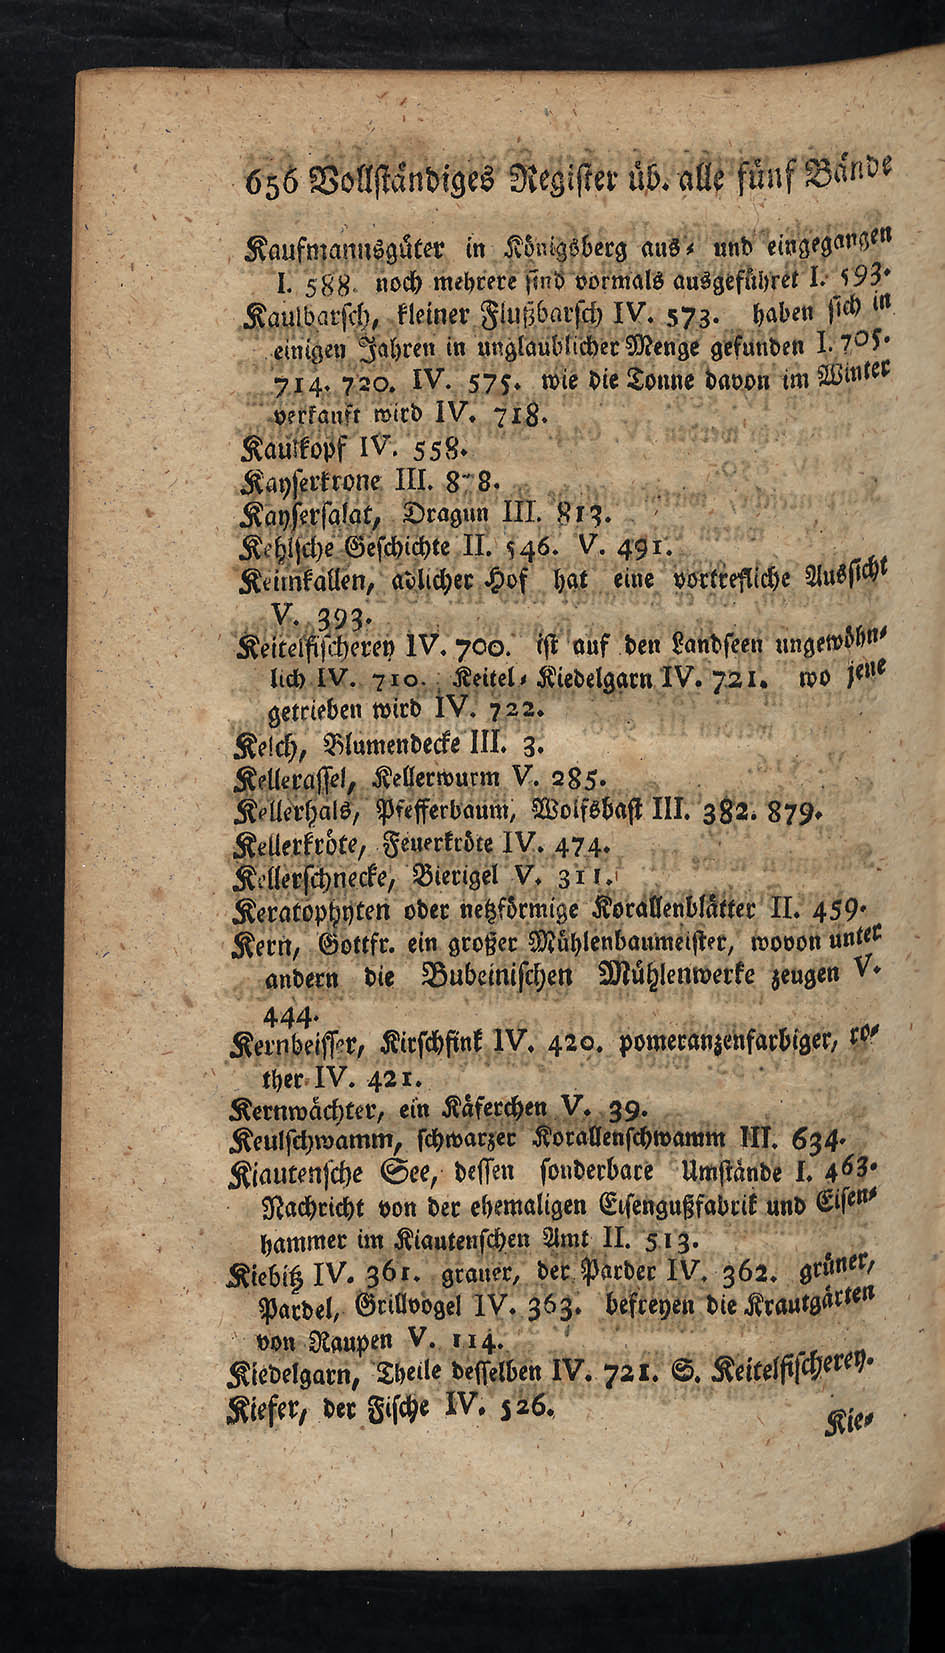 656 Vollständiges Register üb. alle fünf Bände
Kaufmannsgüter in Königsberg aus- und eingegangen
I. 588. noch mehrere sind vormals ausgeführet I. 593.
Kaulbarsch, kleiner Flußbarsch IV. 573. haben sich in
einigen Jahren in unglaublicher Menge gefunden I. 705.
714. 720. IV. 575. wie die Tonne davon im Winter
verkauft wird IV. 718.
Kaulkopf IV. 558.
Kayserkrone III.
Kaysersalat, Dragun III. 813.
Kehlsche Geschichte II. 546. V. 491.
Keimkallen, adlicher Hof hat eine vortrefliche Aussicht
V. 393.
Keitelfischerey IV. 700. ist auf den Landseen ungewöhn-
lich IV. 710. Keitel- Kiedelgarn IV. 721. wo jene
getrieben wird IV. 722.
Kelch, Blumendecke III. 3.
Kellerassel, Kellerwurm V. 285.
Kellerhals, Pfefferbaum, Wolfsbast III. 382. 879.
Kellerkröte, Feuerkröte IV. 474.
Kellerschnecke, Bierigel V. 311.
Keratophyten oder netzförmige Korallenblätter II. 459.
Kern, Gottfr. ein großer Mühlenbaumeister, wovon unter
andern die Bubeinischen Mühlenwerke zeugen V.
444.
Kernbeisser, Kirschfink IV. 420. pomeranzenfarbiger, ro-
ther IV. 421.
Kernwächter, ein Käferchen V. 39.
Keulschwamm, schwarzer Korallenschwamm III. 634.
Kiautensche See, dessen sonderbare Umstände I. 463.
Nachricht von der ehemaligen Eisengußfabrik und Eisen-
hammer im Kiautenschen Amt II. 513.
Kiebitz IV. 361. grauer, der Parder IV. 362. grüner,
Pardel, Grillvogel IV. 363. befreyen die Krautgärten
von Raupen V. 114.
Kiedelgarn, Theile desselben IV. 721. S. Keitelfischerey.
Kiefer, der Fische IV. 526.
Kie-